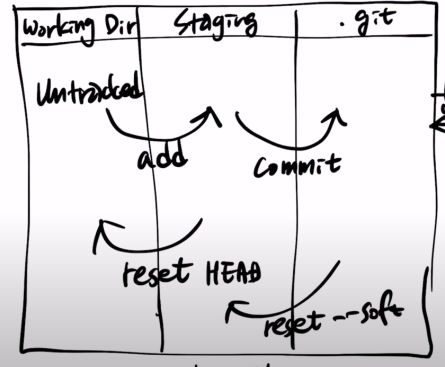 Working Dir Staging .git
Untracked
add commit
reset HEAD
reset --soft